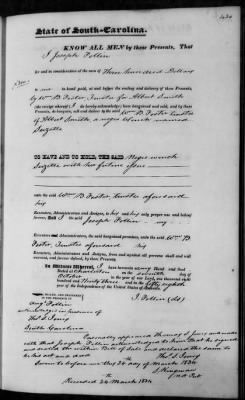 State of South-Carolina.
KNOW ALL MEN by these Presents, That
I Joseph Pellin
for and in consideration of the sum of Three Hundred Dollars
to me in hand paid, at and before the sealing and delivery of these Presents,
by Wm B Foster Trustee for Albert Smith
(the receipt whereof I do hereby acknowledge) have bargained and sold, and by these
Presents, do bargain, sell and deliver to the said Wm B Foster trustee
of Albert Smith a negro wench named
Suzette
TO HAVE AND TO HOLD, THE SAID Negro wench
Suzette with her future issue
unto the said Wm B Foster trustee aforesaid
his
Executors, Administrators and Assigns, to his and his only proper use and behoof
forever. And I the said Joseph Pellin my
Executors and Administrators, the said bargained premises, unto the said Wm B
Foster, Trustee aforesaid his
Executors, Administrators and Assigns, from and against all persons shall and will
warrant, and forever defend, by these Presents.
In Witness Whereof, I have hereunto set my Hand and Seal
Dated at Charleston on the seventh day of
October in the year of our Lord, one thousand eight
hundred and thirty three and in the fifty eighth
year of the Independence of the United States of America.
J Pellin (LS)
SIGNED, SEALED, AND DELIVERED
IN THE PRESENCE OF
Thos J
South Carolina
Personally appeared Thomas J
that Joseph Pellin acknowledged to him that he signed
and sealed the within Bill of Sale and declared the same to
be his act and deed
Thos J
Sworn to before me this 24 day of March 1834
Recorded 24 March 1834